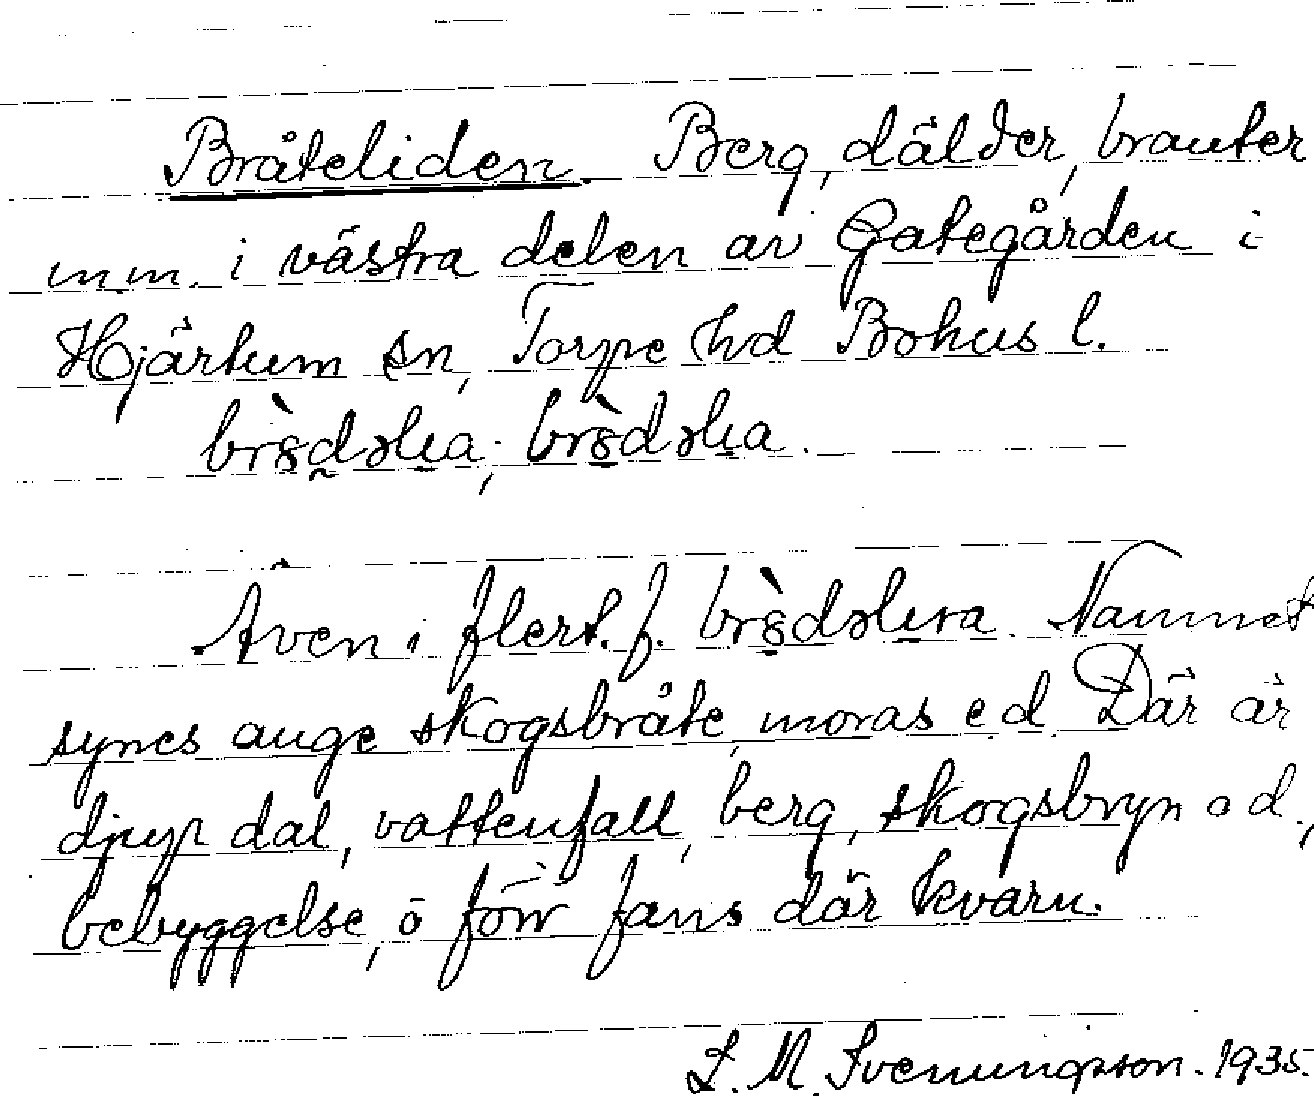 Bråteliden. Berg, dälder, branter
m.m. i västra delen av Gategården i
Hjärtum sn, Torpe hd Bohus l.
bròdəlia; bròdəlia.
Även i flert. f. bròdəlira. Namnet
synes ange skogsbråte, moras e.d. Där är
djup dal, vattenfall, berg, skogsbryn o d.,
bebyggelse, ö förr fans där kvarn.
L. M. Svenungsson. 1935.